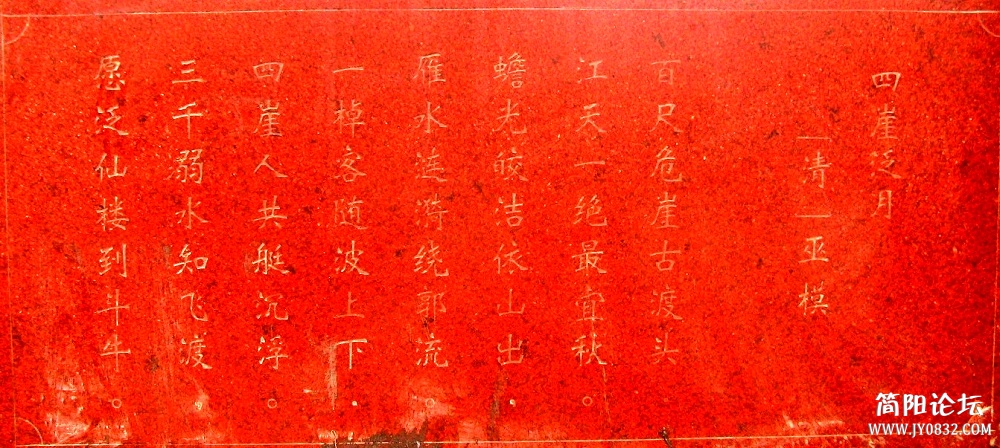 四崖泛月
［清］亚模
百尺危崖古渡头
江天一绝最宜秋。
蟾光皎洁依山出
雁水连漪绕郭流。
一棹客随波上下
四崖人共艇沉浮。
三千弱水知飞渡
愿泛仙楼到斗牛。
简阳论坛
WWW.JY0832.COM